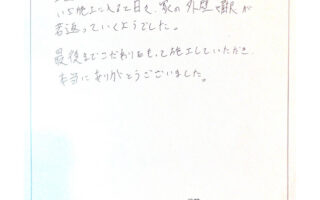 いざ施工に入ると日々、家の外壁や眺めが
若返っていくようでした。
最後までこだわりをもって施工していただき
本当にありがとうございました。